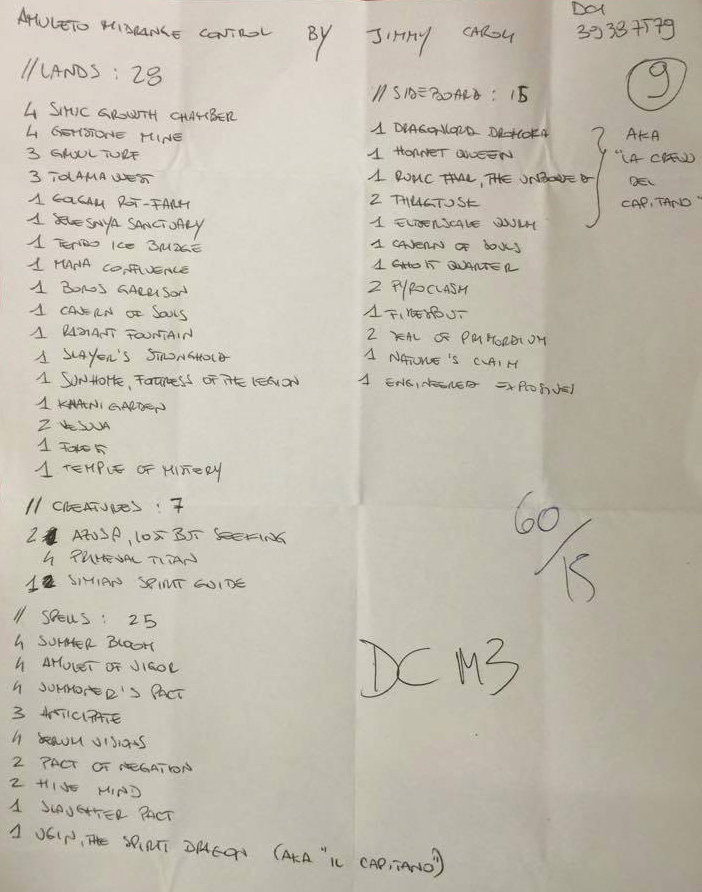 AMULETO MIDRANGE CONTROL BY JIMMY CAROLI
DCI
39387579
9
//LANDS : 28
4 SIMIC GROWTH CHAMBER
4 GEMSTONE MINE
3 GRUUL TURF
3 TOLARIA WEST
1 GOLGARI ROT-FARM
1 SELESNYA SANCTUARY
1 TENDO ICE BRIDGE
1 MANA CONFLUENCE
1 BOROS GARRISON
1 CAVERN OF SOULS
1 RADIANT FOUNTAIN
1 SLAYER'S STRONGHOLD
1 SUNHOME, FORTRESS OF THE LEGION
1 KHALNI GARDEN
2 VESUVA
1 FOREST
1 TEMPLE OF MISTERY
// CREATURES : 7
2 AZUSA, LOST BUT SEEKING
4 PRIMEVAL TITAN
1 SIMIAN SPIRIT GUIDE
// SPELLS : 25
4 SUMMER BLOOM
4 AMULET OF VIGOR
4 SUMMONER'S PACT
3 ANTICIPATE
4 SERUM VISIONS
2 PACT OF NEGATION
2 HIVE MIND
1 SLAUGHTER PACT
1 UGIN, THE SPIRIT DRAGON (AKA "IL CAPITANO")
// SIDEBOARD : 15
1 DRAGONLORD DROMOKA
1 HORNET QUEEN
1 RURIC THAR, THE UNBOWED
2 THRAGTUSK
1 ELDERSCALE WURM
AKA
"LA CREW
DEL
CAPITANO"
1 CAVERN OF SOULS
1 GHOST QUARTER
2 PYROCLASM
1 FIRESPOUT
2 SEAL OF PRIMORDIUM
1 NATURE'S CLAIM
1 ENGINEERED EXPLOSIVES
60/15
DC M3